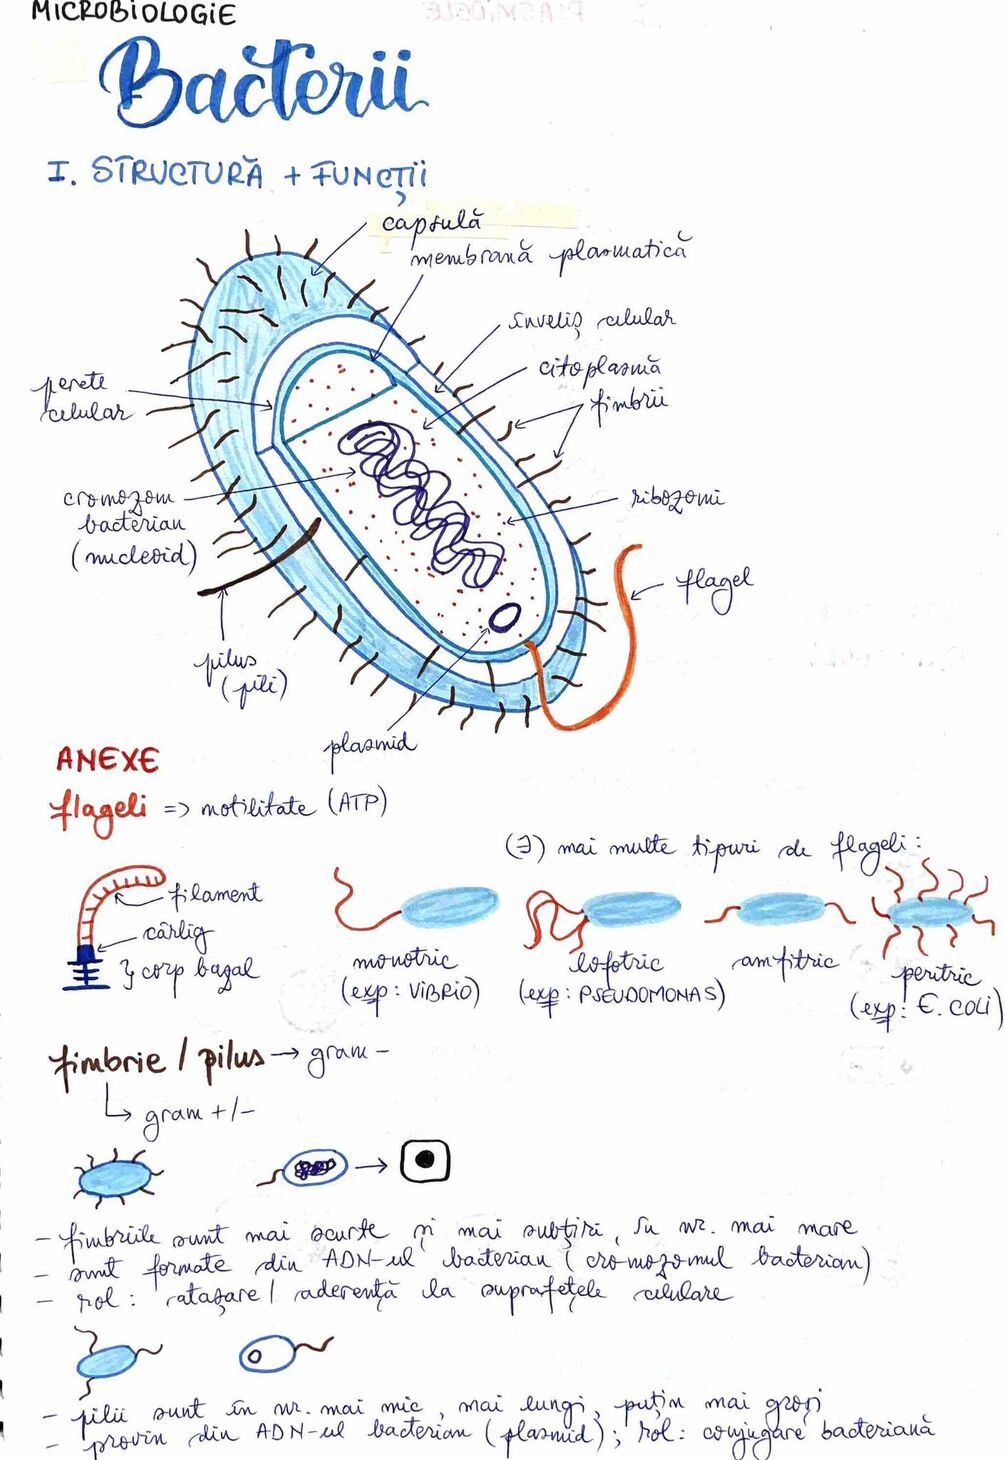 MICROBIOLOGIE
Bacterii
I. STRUCTURĂ + FUNCȚII
capsulă
membrană plasmatică
înveliș celular
citoplasmă
fimbrii
perete
celular
cromozom
bacterian
(nucleoid)
ribozomi
flagel
pilus
(pili)
plasmid
ANEXE
flageli => motilitate (ATP)
(∃) mai multe tipuri de flageli:
filament
cârlig
} corp bazal
monotric
(exp: VIBRIO)
lofotric
(exp: PSEUDOMONAS)
amfitric
peritric
(exp: E. COLI)
fimbrie / pilus → gram -
↳ gram +/-
- fimbriile sunt mai scurte și mai subțiri, în nr. mai mare
- sunt formate din ADN-ul bacterian (cromozomul bacterian)
- rol: atașare / aderență la suprafețele celulare
- pilii sunt în nr. mai mic, mai lungi, puțin mai groși
- provin din ADN-ul bacterian (plasmid); rol: conjugare bacteriană